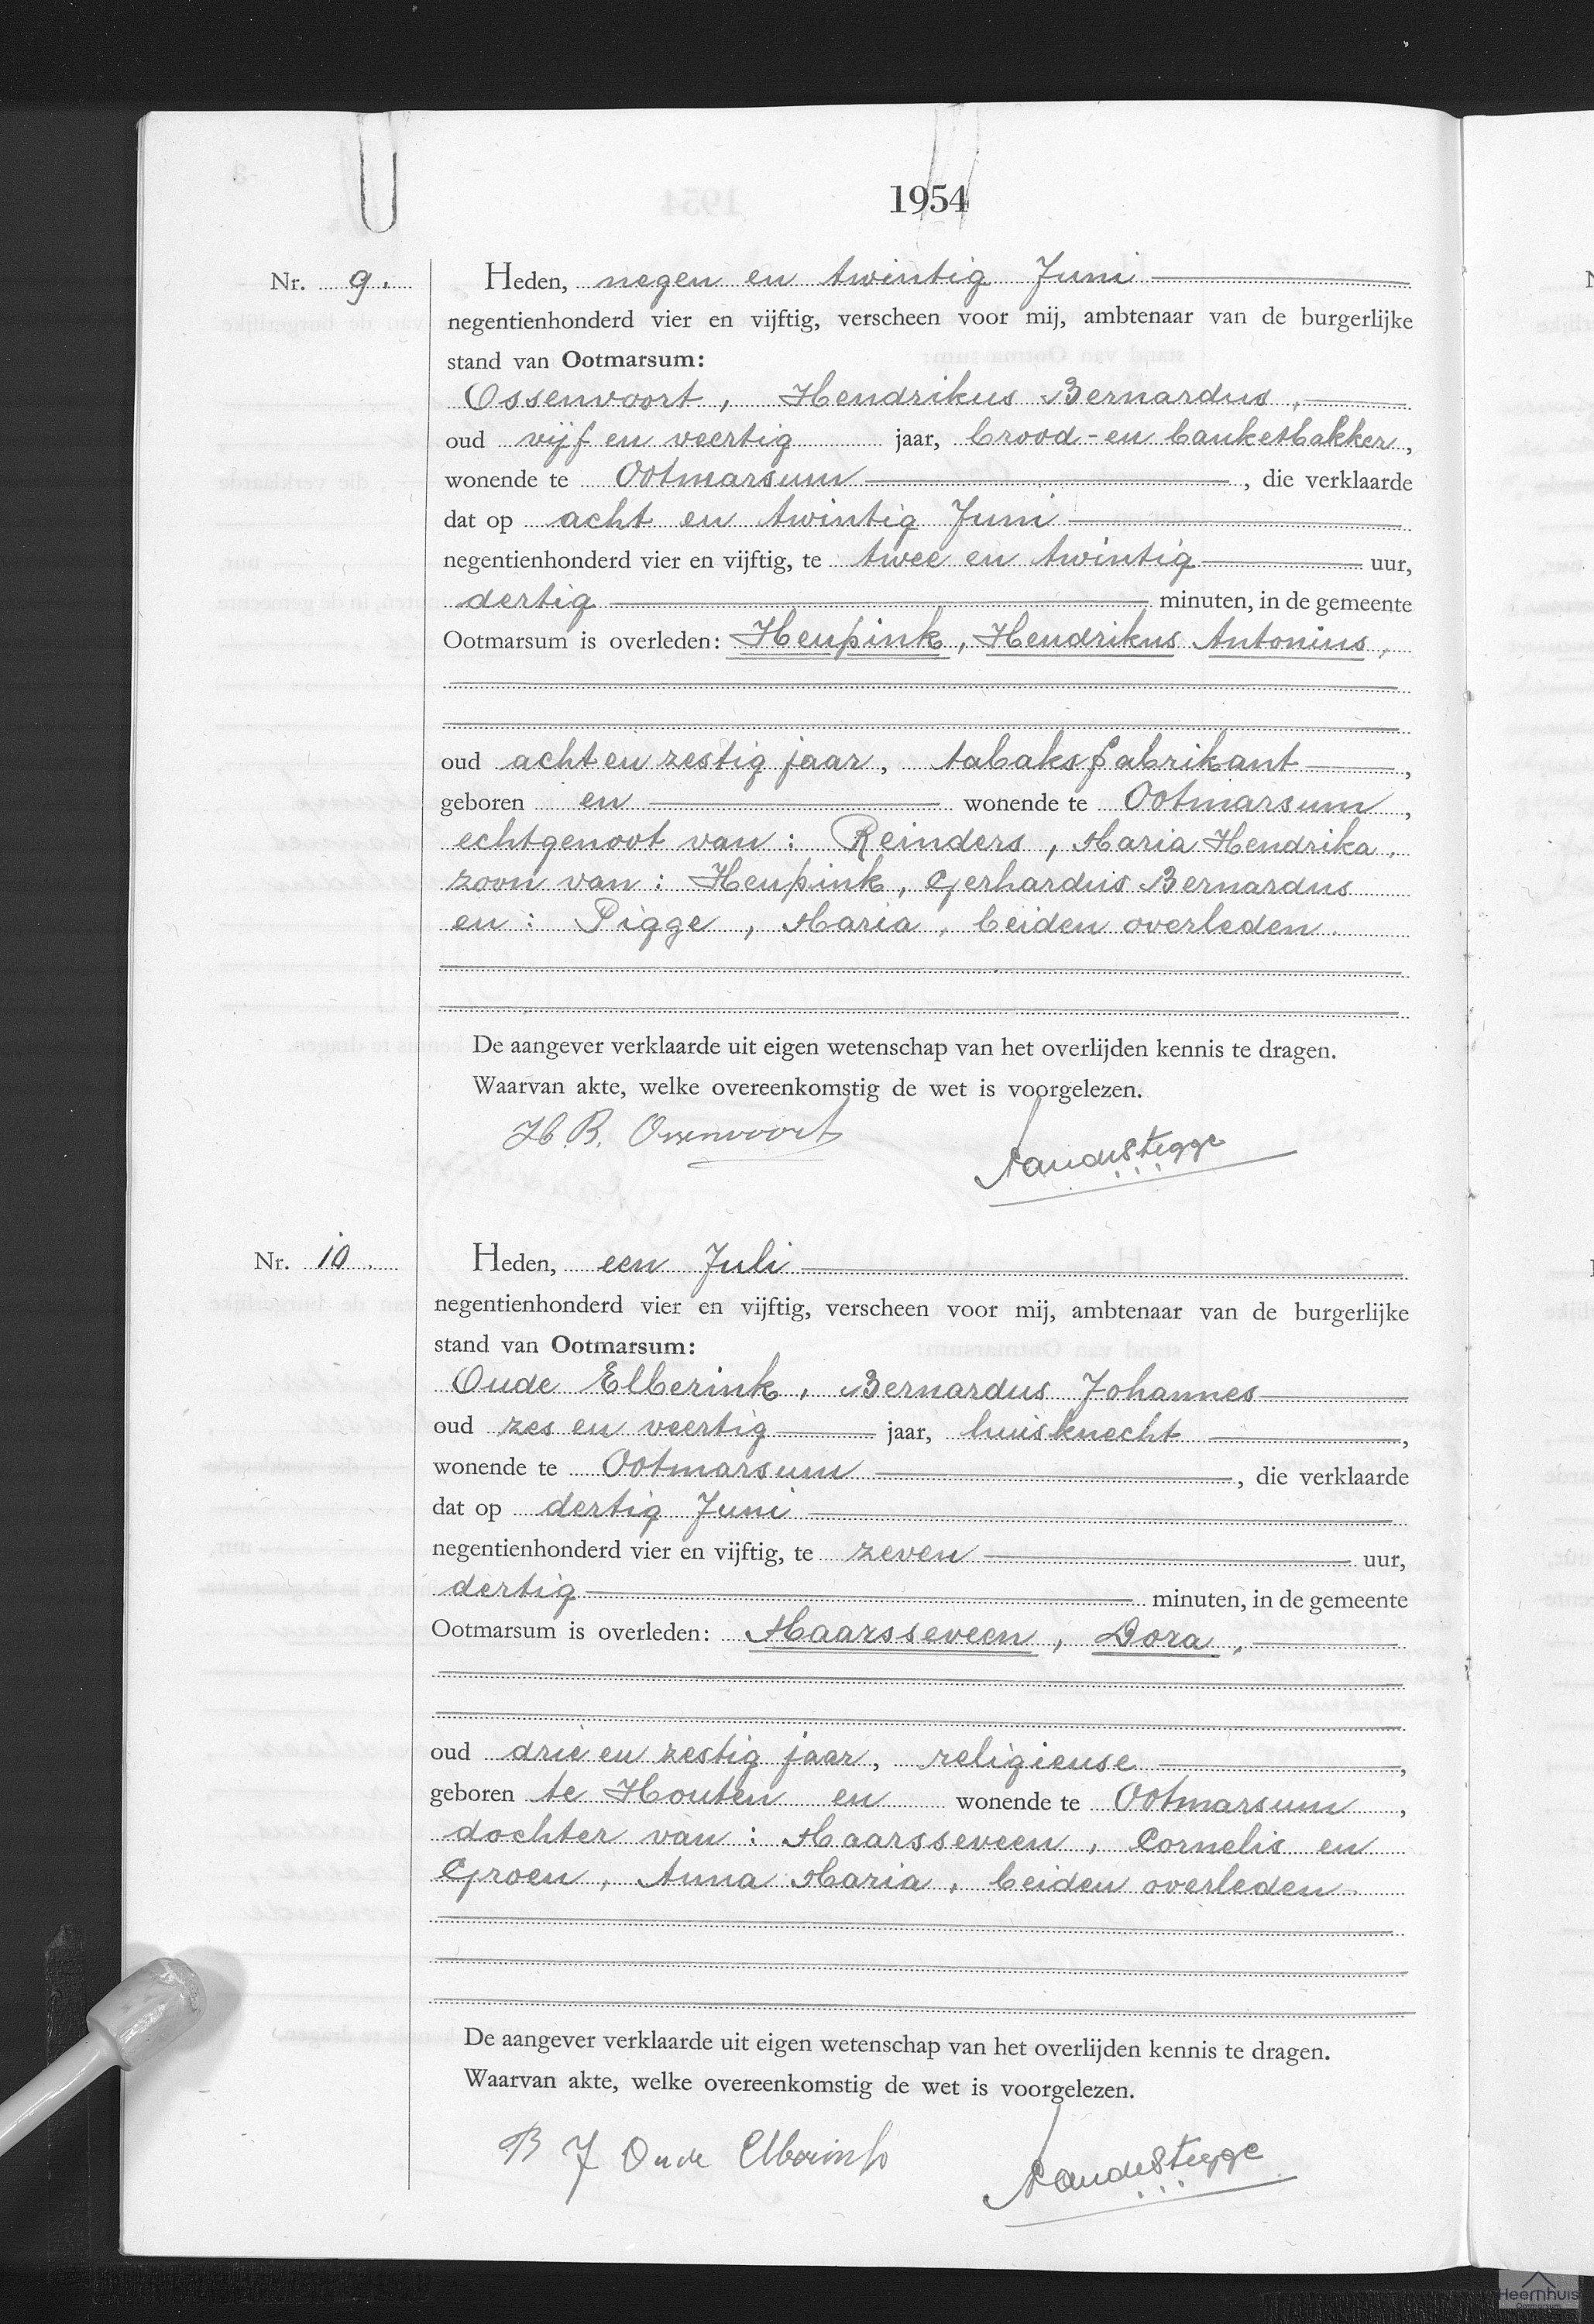 1954
Nr. 9.
Heden, negen en twintig Juni
negentienhonderd vier en vijftig, verscheen voor mij, ambtenaar van de burgerlijke
stand van Ootmarsum:
Ossenvoort, Hendrikus Bernardus,
oud vijf en veertig jaar, brood- en banketbakker,
wonende te Ootmarsum, die verklaarde
dat op acht en twintig Juni
negentienhonderd vier en vijftig, te twee en twintig uur,
dertig minuten, in de gemeente
Ootmarsum is overleden: Heupink, Hendrikus Antonius,
oud acht en zestig jaar, tabaksfabrikant,
geboren en wonende te Ootmarsum,
echtgenoot van: Reinders, Maria Hendrika.
zoon van: Heupink, Gerhardus Bernardus
en: Pigge, Maria, beiden overleden.
De aangever verklaarde uit eigen wetenschap van het overlijden kennis te dragen.
Waarvan akte, welke overeenkomstig de wet is voorgelezen.
H.B. Ossenvoort
Nr. 10.
Heden, een Juli
negentienhonderd vier en vijftig, verscheen voor mij, ambtenaar van de burgerlijke
stand van Ootmarsum:
Oude Elberink, Bernardus Johannes
oud zes en veertig jaar, huisknecht,
wonende te Ootmarsum, die verklaarde
dat op dertig Juni
negentienhonderd vier en vijftig, te zeven uur,
dertig minuten, in de gemeente
Ootmarsum is overleden: Maarsseveen, Dora,
oud drie en zestig jaar, religieuse,
geboren te Houten en wonende te Ootmarsum,
dochter van: Maarsseveen, Cornelis en
Groen, Anna Maria, beiden overleden.
De aangever verklaarde uit eigen wetenschap van het overlijden kennis te dragen.
Waarvan akte, welke overeenkomstig de wet is voorgelezen.
B J Oude Elberink
Heemhuis
Ootmarsum